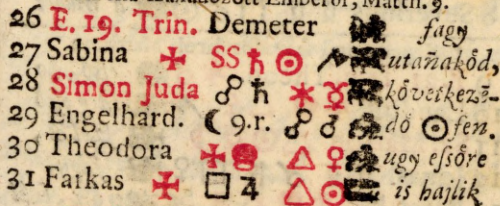 Matth. 9.
26 E. 19. Trin. Demeter fagy
27 Sabina ✠ SS ♄ ☉ utañakȯd,
28 Simon Juda ☍ ♄ ✶ ☿ kȯvetkez-
29 Engelhard. ☾ 9.r. ☍ ♂ dȯ ☉ fén
30 Theodora ✠ △ ♀ ugy eſsȯre
31 Farkas ✠ □ ♃ △ ☉ is hajlik